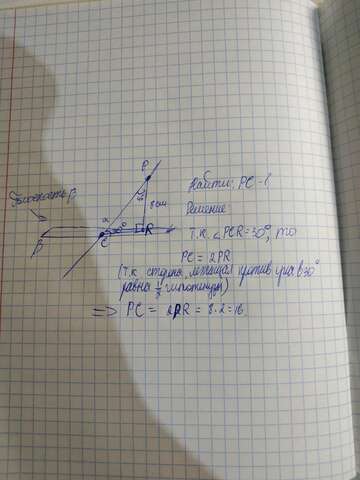 Плоскость β
β
a
P
8 см
30°
C
R
Найти: PC - ?
Решение:
Т.к. ∠PCR = 30°, то
PC = 2PR
(т.к. сторона, лежащая против угла в 30°
равна 1/2 гипотенузы)
=> PC = 2PR = 8·2 = 16